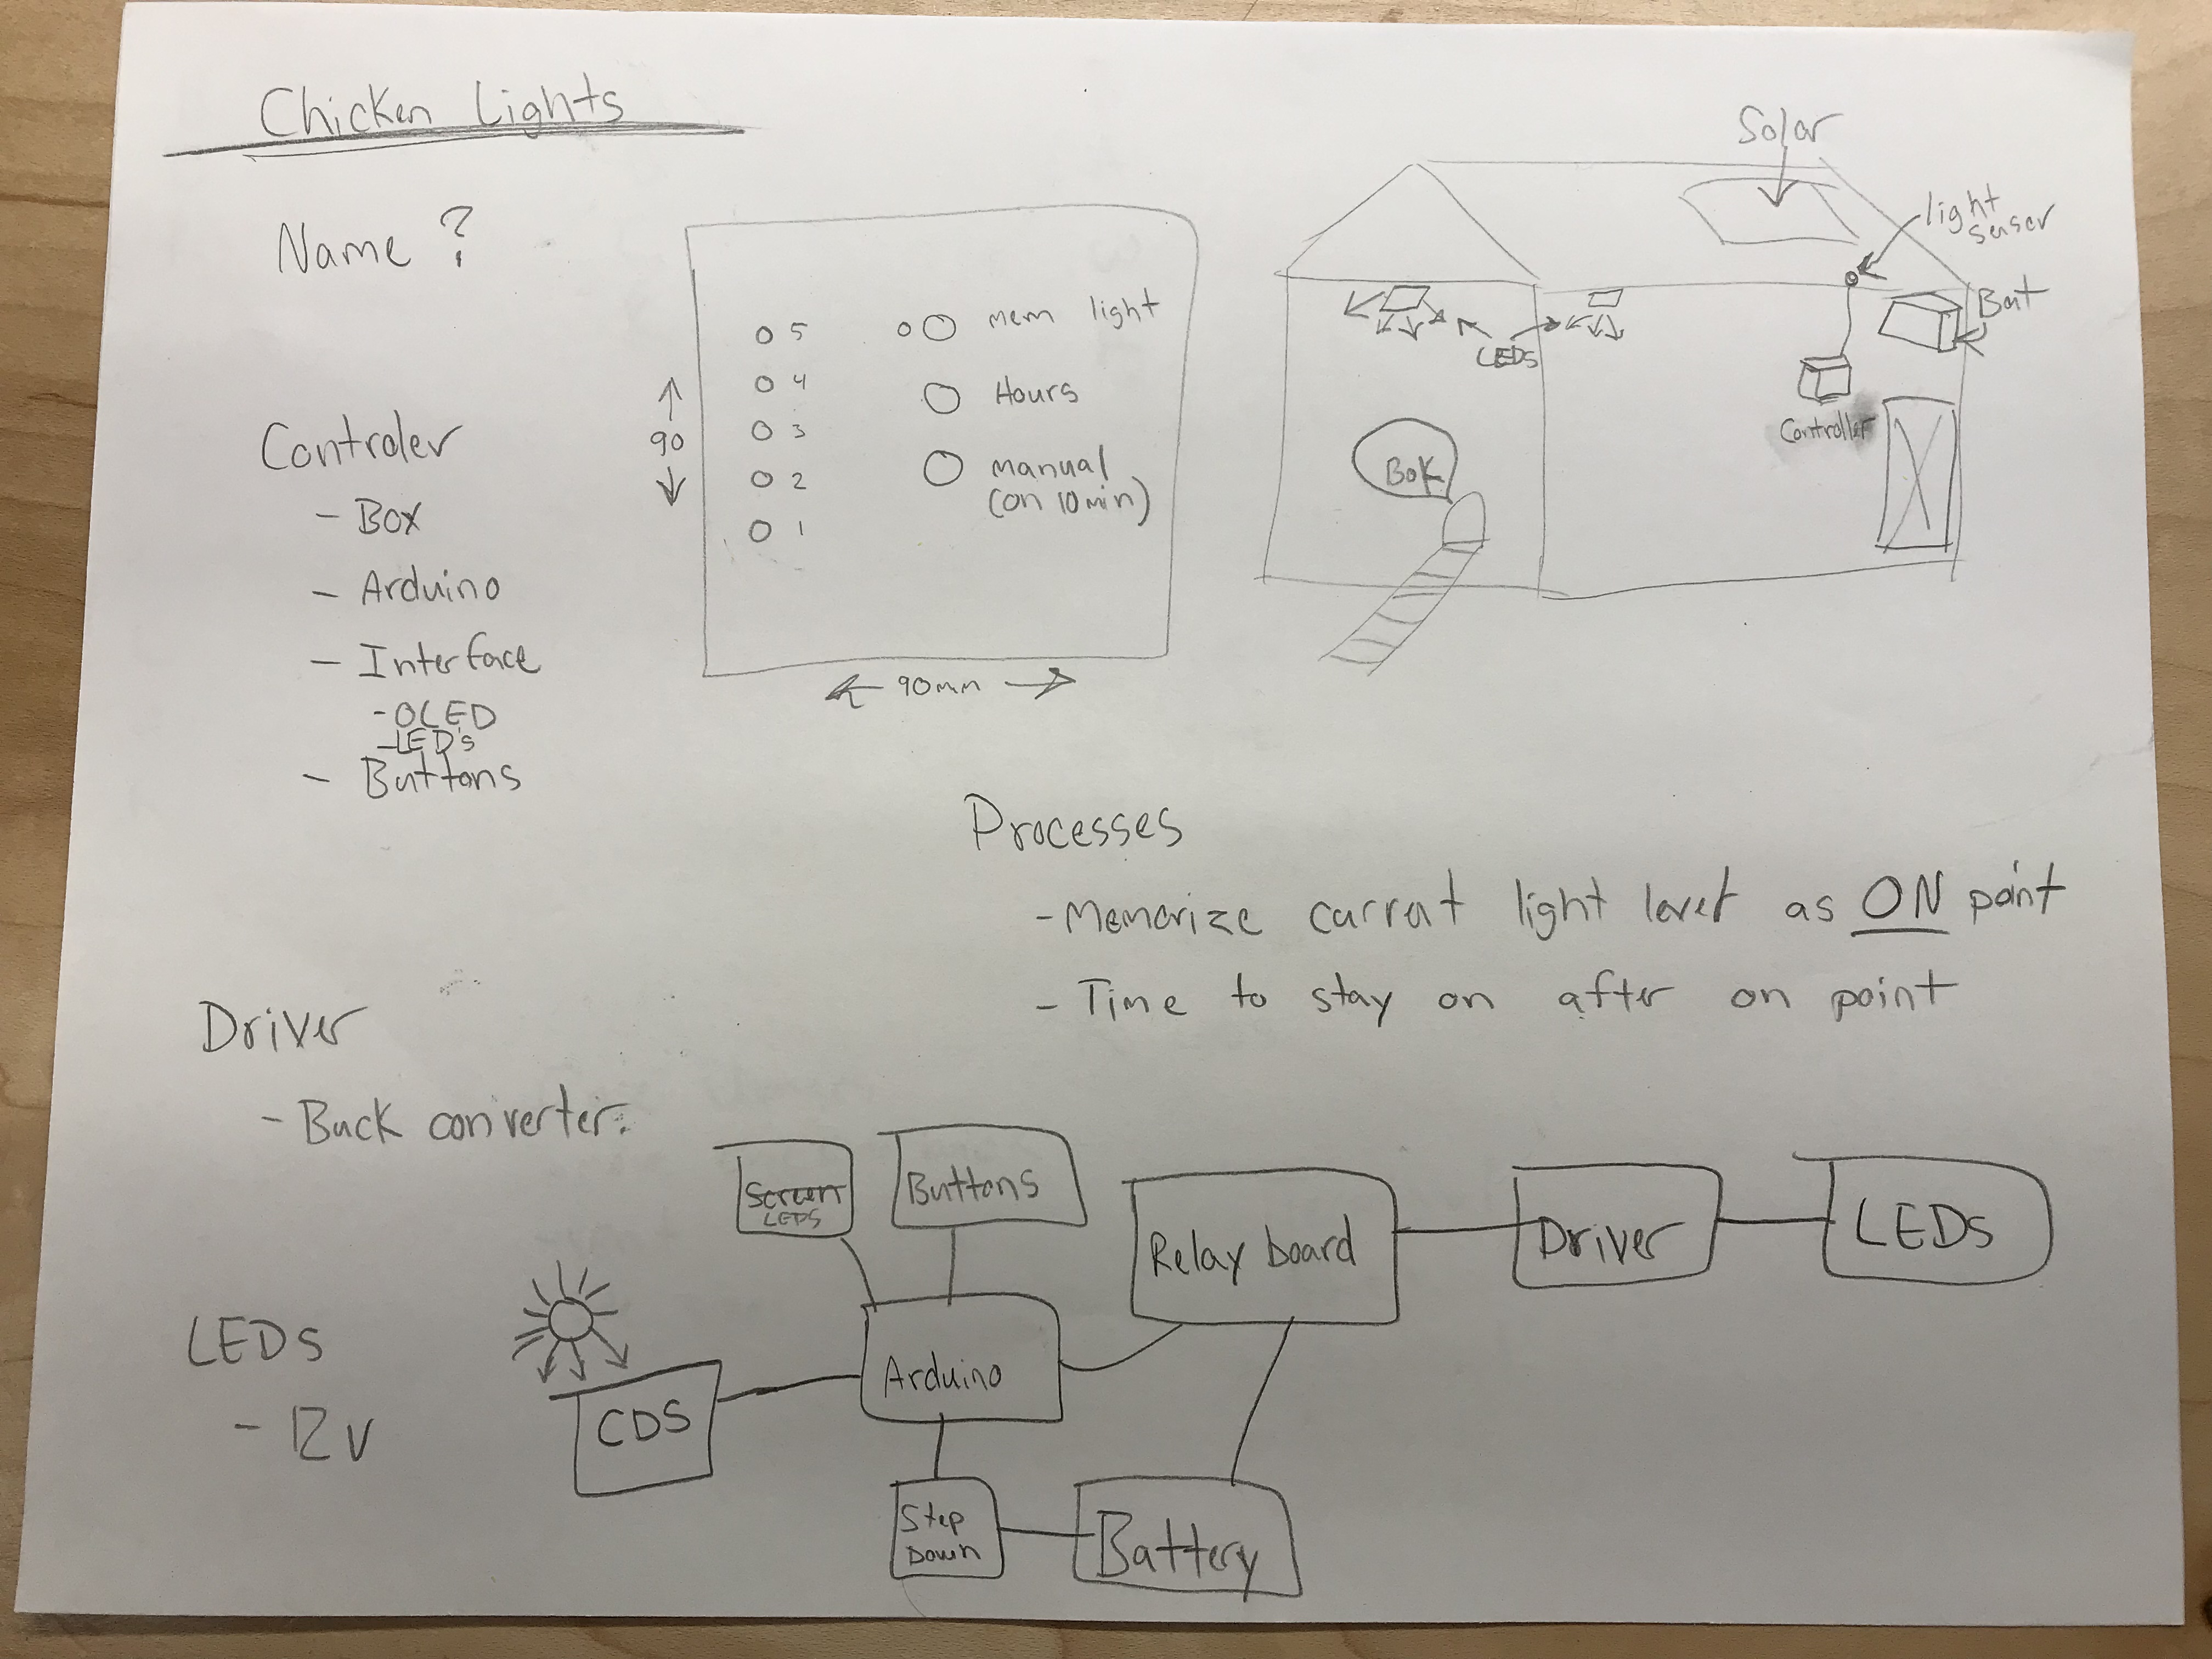 Chicken Lights
Name ?
Controler
- Box
- Arduino
- Interface
- OLED
- LED's
- Buttons
5
4
3
2
1
mem light
Hours
manual
(on 10min)
90
90mm
Solar
light
sensor
Bat
LEDs
Controller
Bok
Processes
- Memorize currat light level as ON point
- Time to stay on after on point
Driver
- Buck converter.
LEDs
- 12 v
Screen
LEDS
Buttons
Relay board
Driver
LEDs
CDS
Arduino
Step
Down
Battery